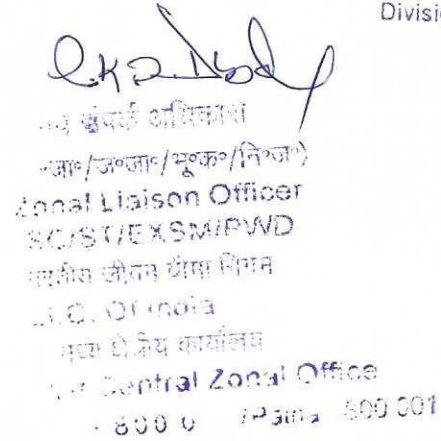 Divisi
संपर्क अधिकारी
जा०/ज०जा०/भू०क०/नि०ज०)
Zonal Liaison Officer
SC/ST/EXSM/PWD
भारतीय जीवन बीमा निगम
Of India
मध्य क्षेत्रीय कार्यालय
Central Zonal Office
800 0 /Patna 800 001